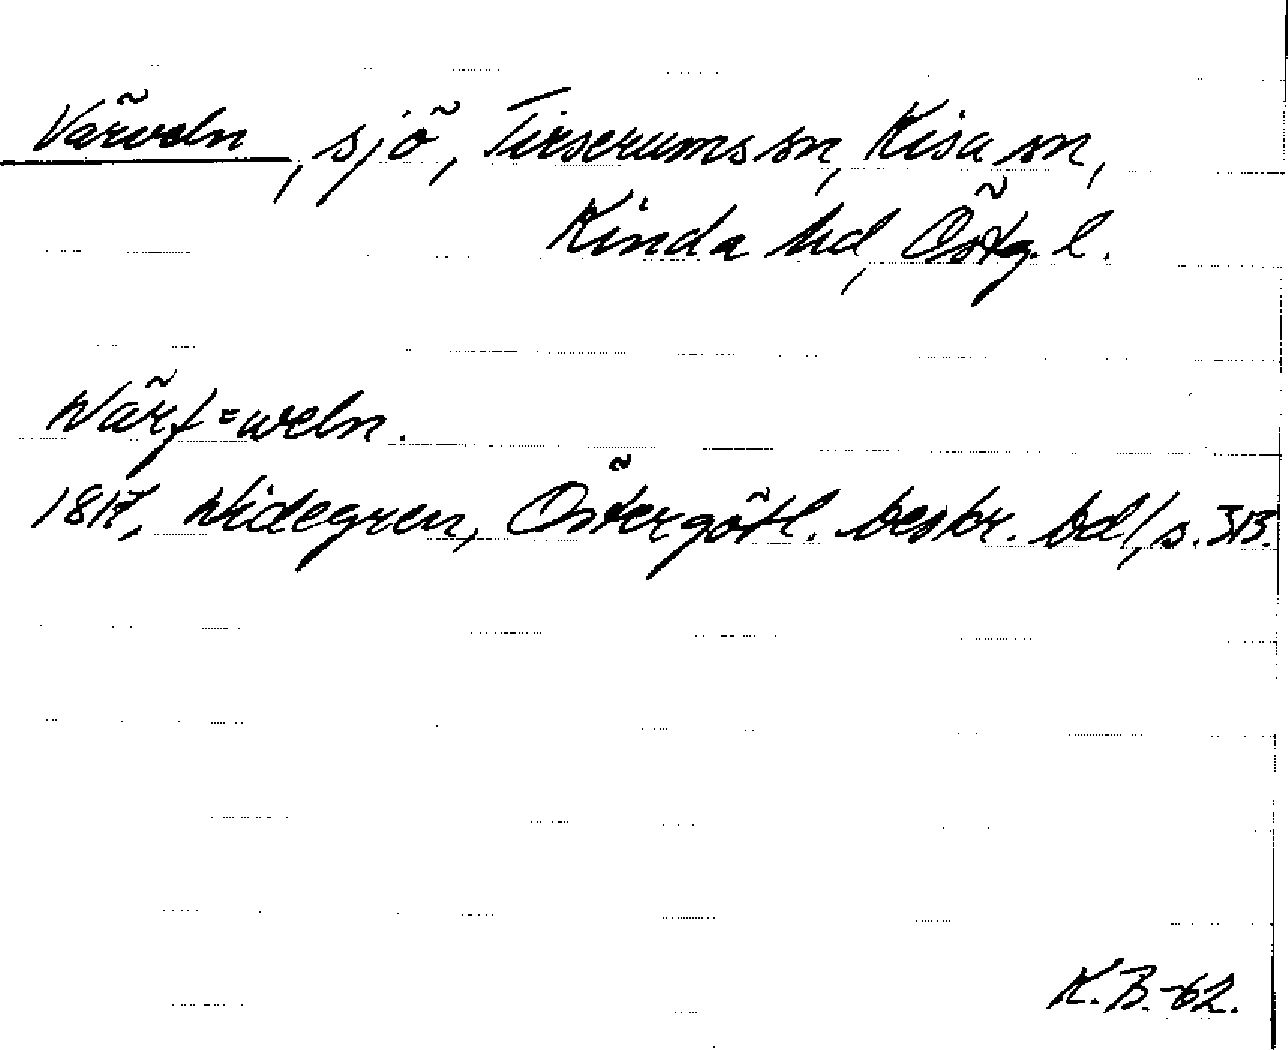 Värveln, sjö, Tirserums sn, Kisa sn,
Kinda hd, Östg. l.
Wärf=weln.
1817, Widegren, Östergötl. beskr. bd 1, s. 313.
K.B.-62.